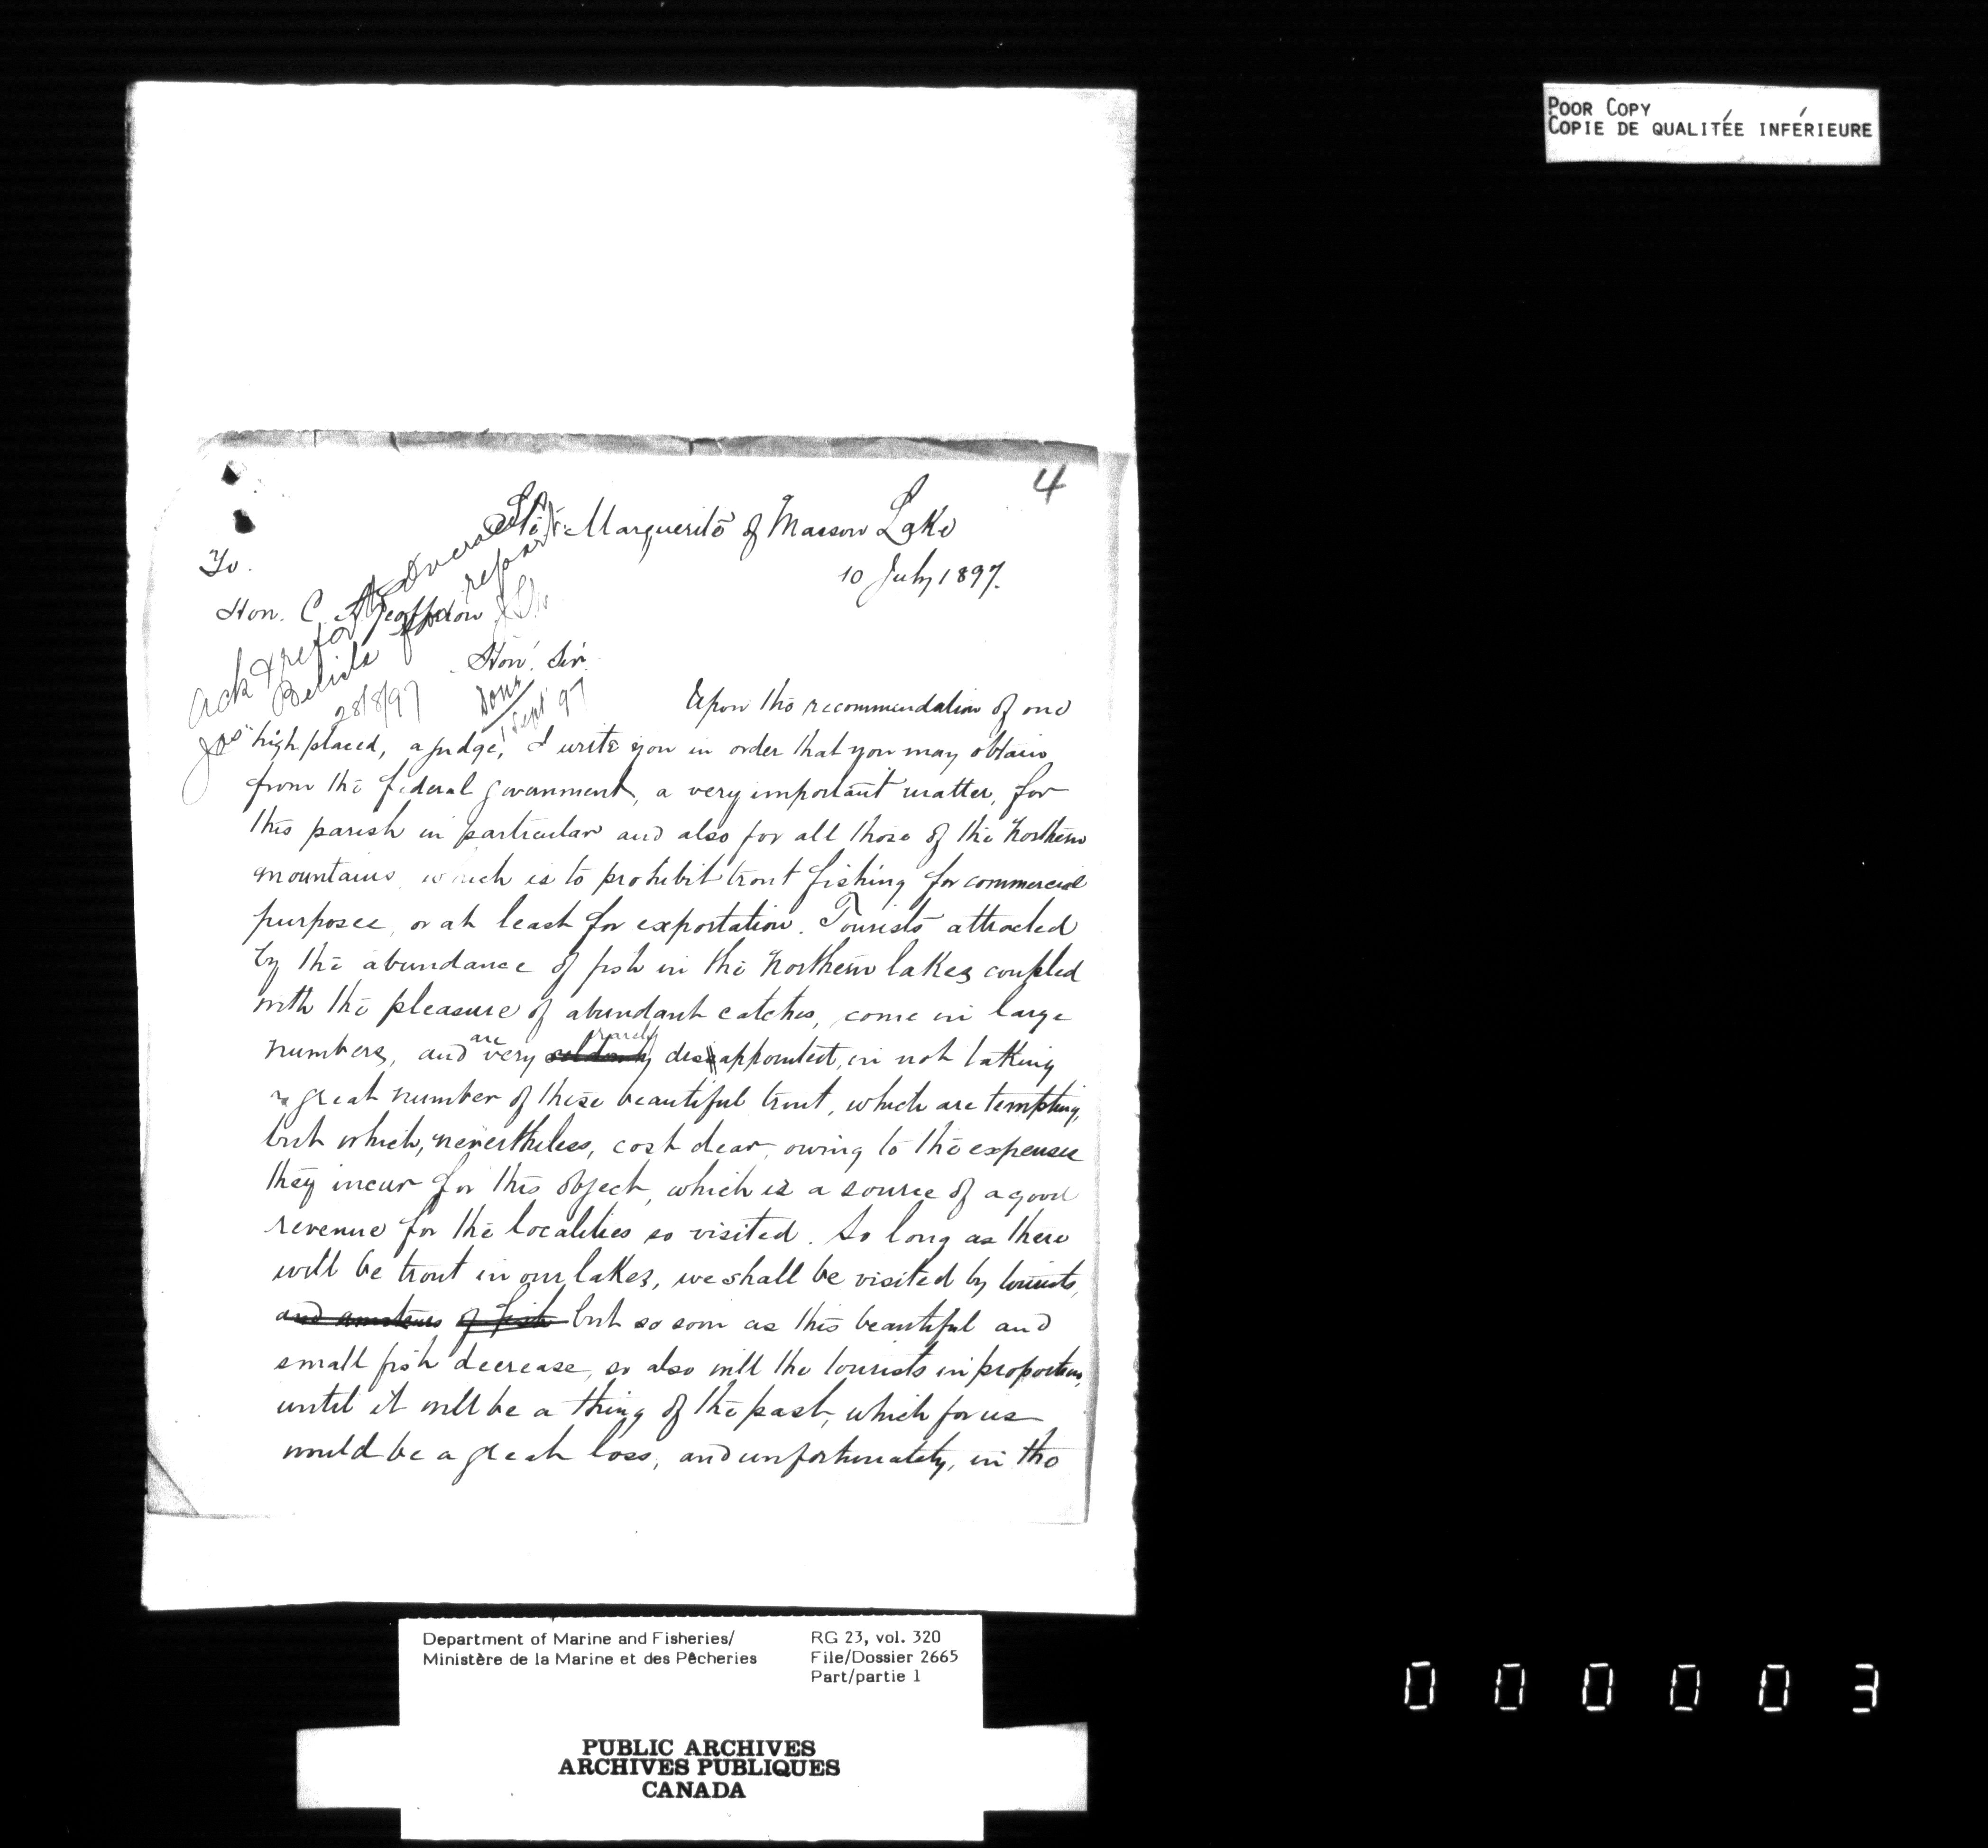 POOR COPY
COPIE DE QUALITÉE INFÉRIEURE
4
Ste. Marguerite of Masson Lake
10 July 1897.
To.
Hon. C. A Geoffrion
Ack & refer to Overseer
Belisle for report
28/8/97
Done
1 Sept 97
Hon'. Sir.
Upon the recommendation of one
high placed, a judge, I write you in order that you may obtain
from the federal government, a very important matter, for
this parish in particular and also for all those of the Northern
mountains, which is to prohibit trout fishing for commercial
purposes, or at least for exportation. Tourists attracted
by the abundance of fish in the Northern lakes coupled
with the pleasure of abundant catches, come in large
numbers, and are very rarely disappointed, in not taking
a great number of these beautiful trout, which are tempting,
but which, nevertheless, cost dear, owing to the expenses
they incur for this object, which is a source of a good
revenue for the localities so visited. So long as there
will be trout in our lakes, we shall be visited by tourists,
and amateurs of fish but so soon as this beautiful and
small fish decrease, so also will the tourists in proportion,
until it will be a thing of the past, which for us
would be a great loss, and unfortunately, in the
Department of Marine and Fisheries/
Ministère de la Marine et des Pêcheries
RG 23, vol. 320
File/Dossier 2665
Part/partie 1
PUBLIC ARCHIVES
ARCHIVES PUBLIQUES
CANADA
0 0 0 0 0 3